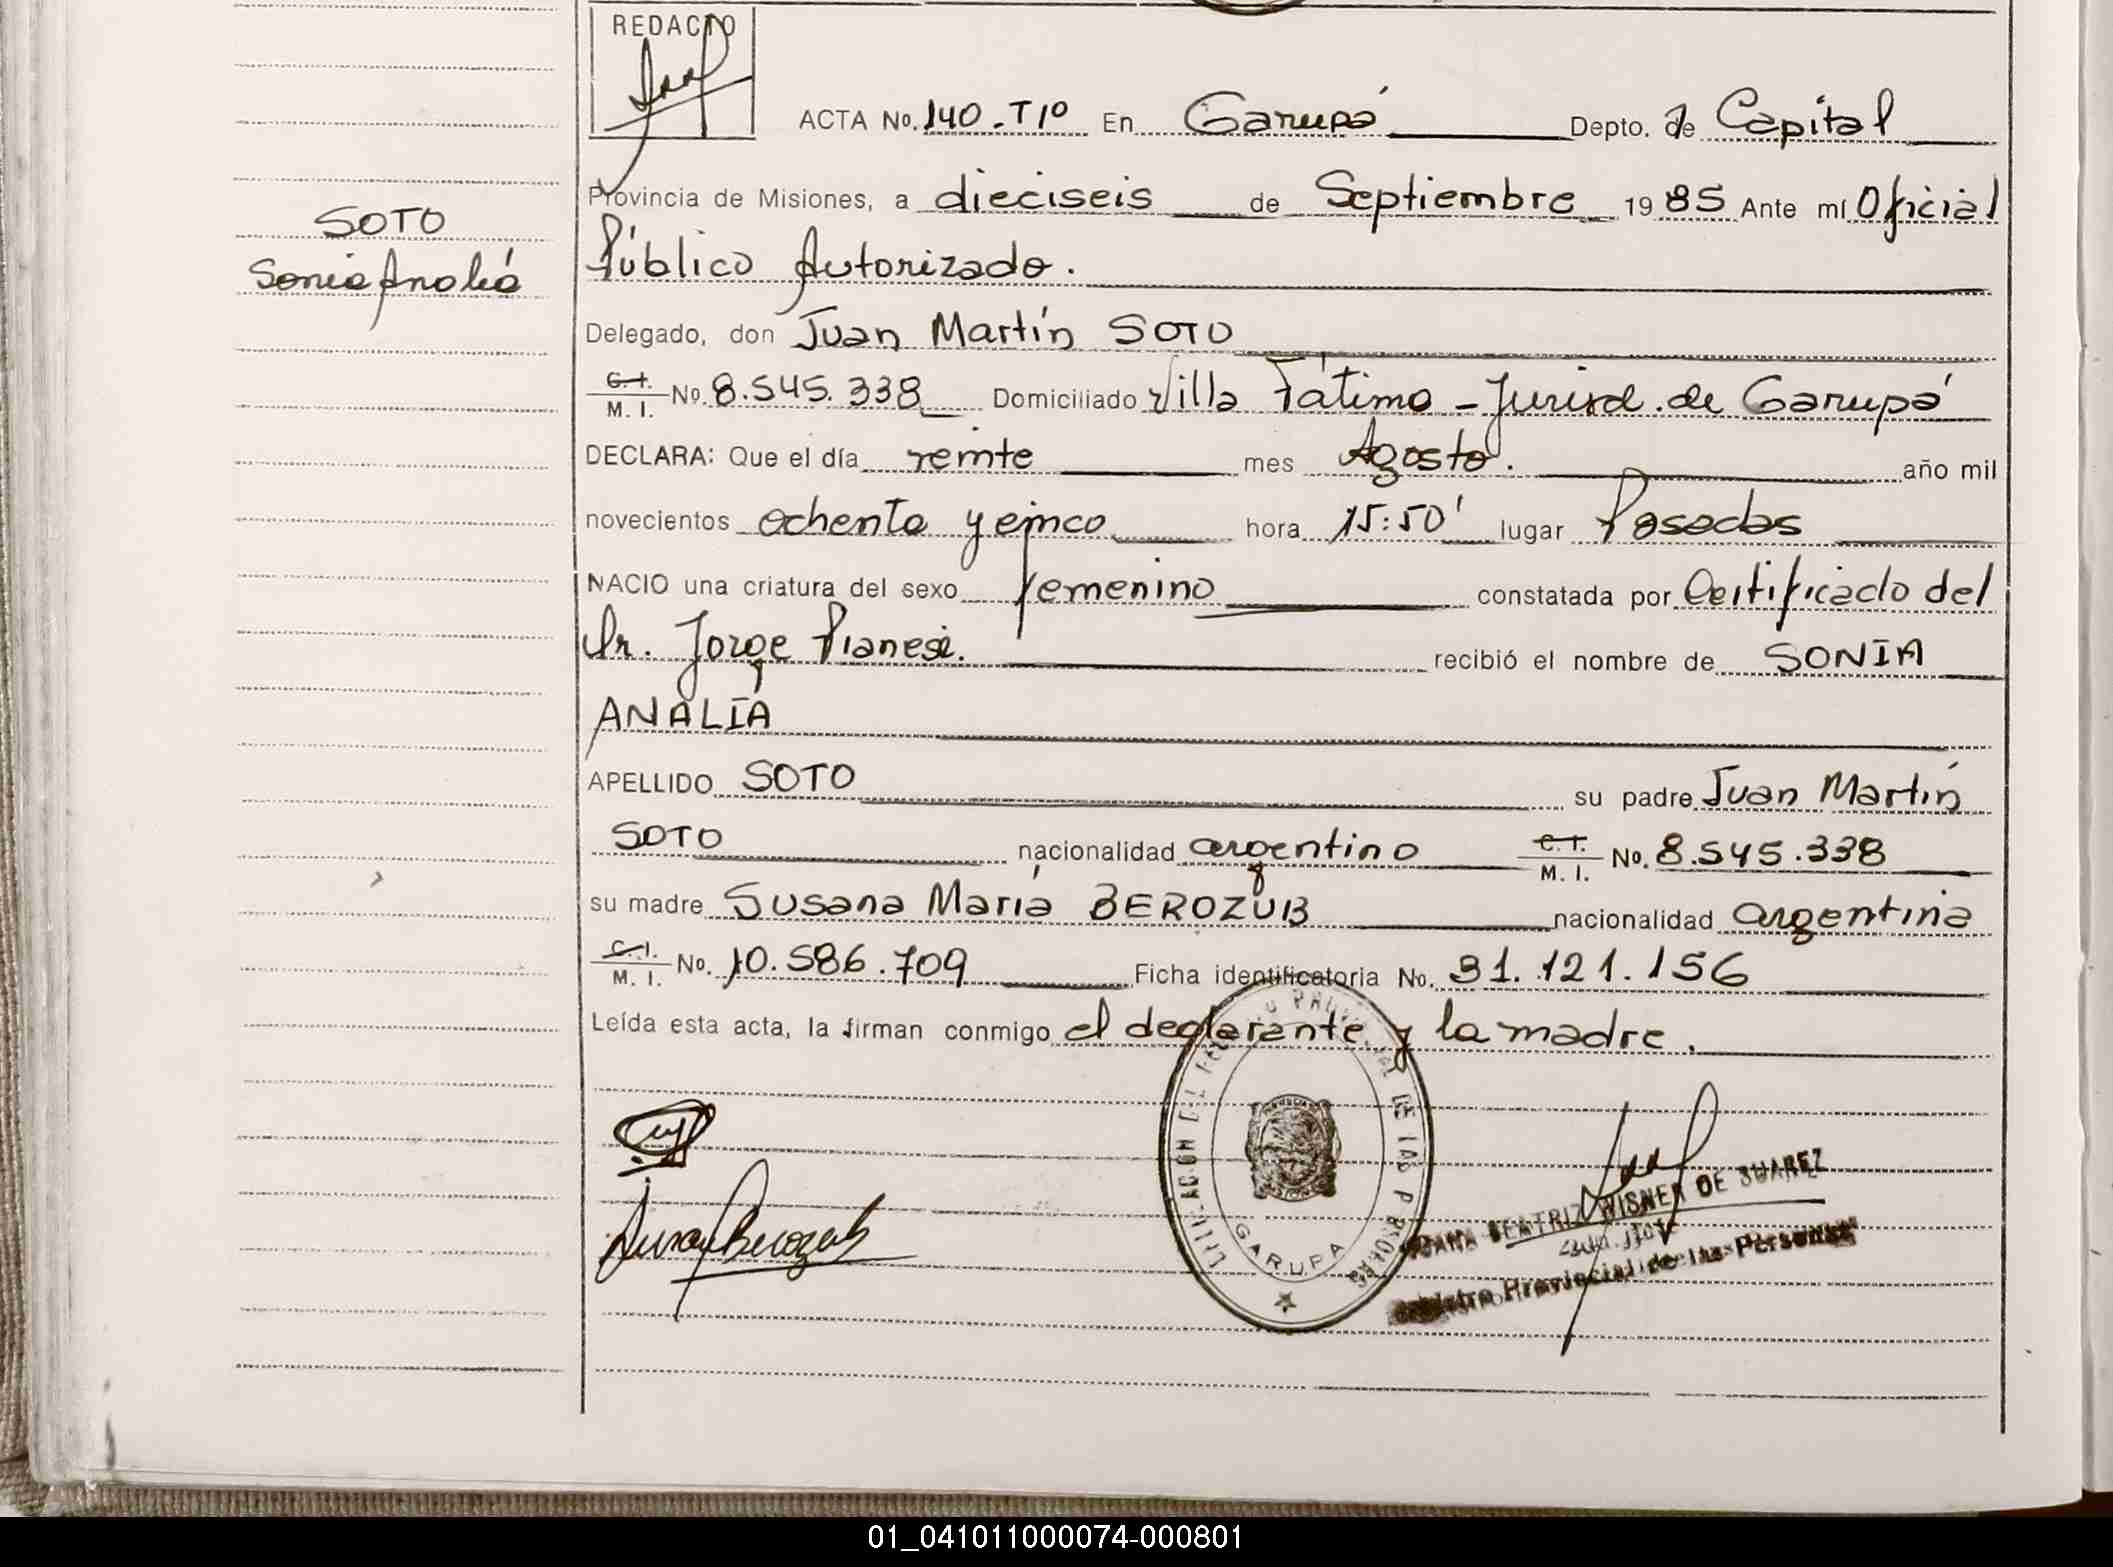 REDACTO
ACTA No. 140-Tº1º En Garupá Depto. de Capital
Provincia de Misiones, a dieciseis de Septiembre 1985 Ante mí Oficial
Público Autorizado.
SOTO
Sonia Analía
Delegado, don Juan Martín SOTO
C. I. M. I. No. 8.545.338 Domiciliado Villa Fátima - Jurisd. de Garupá
DECLARA: Que el día veinte mes Agosto. año mil
novecientos ochenta y cinco hora 15:50' lugar Posadas
NACIO una criatura del sexo femenino constatada por Certificado del
Dr. Jorge Pianesi. recibió el nombre de SONIA
ANALÍA
APELLIDO SOTO su padre Juan Martín
SOTO nacionalidad argentino C. I. M. I. No. 8.545.338
su madre Susana María BEROZUB nacionalidad argentina
C. I. M. I. No. 10.586.709 Ficha identificatoria No. 31.121.156
Leída esta acta, la firman conmigo el declarante y la madre.
BEATRIZ WISNER DE SUAREZ
Registro Provincial de las Personas
GARUPA
01_041011000074-000801